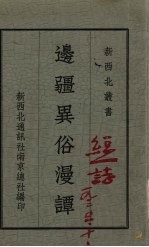 新西北叢書
邊疆異俗漫譚
新西北通訊社南京總社編印